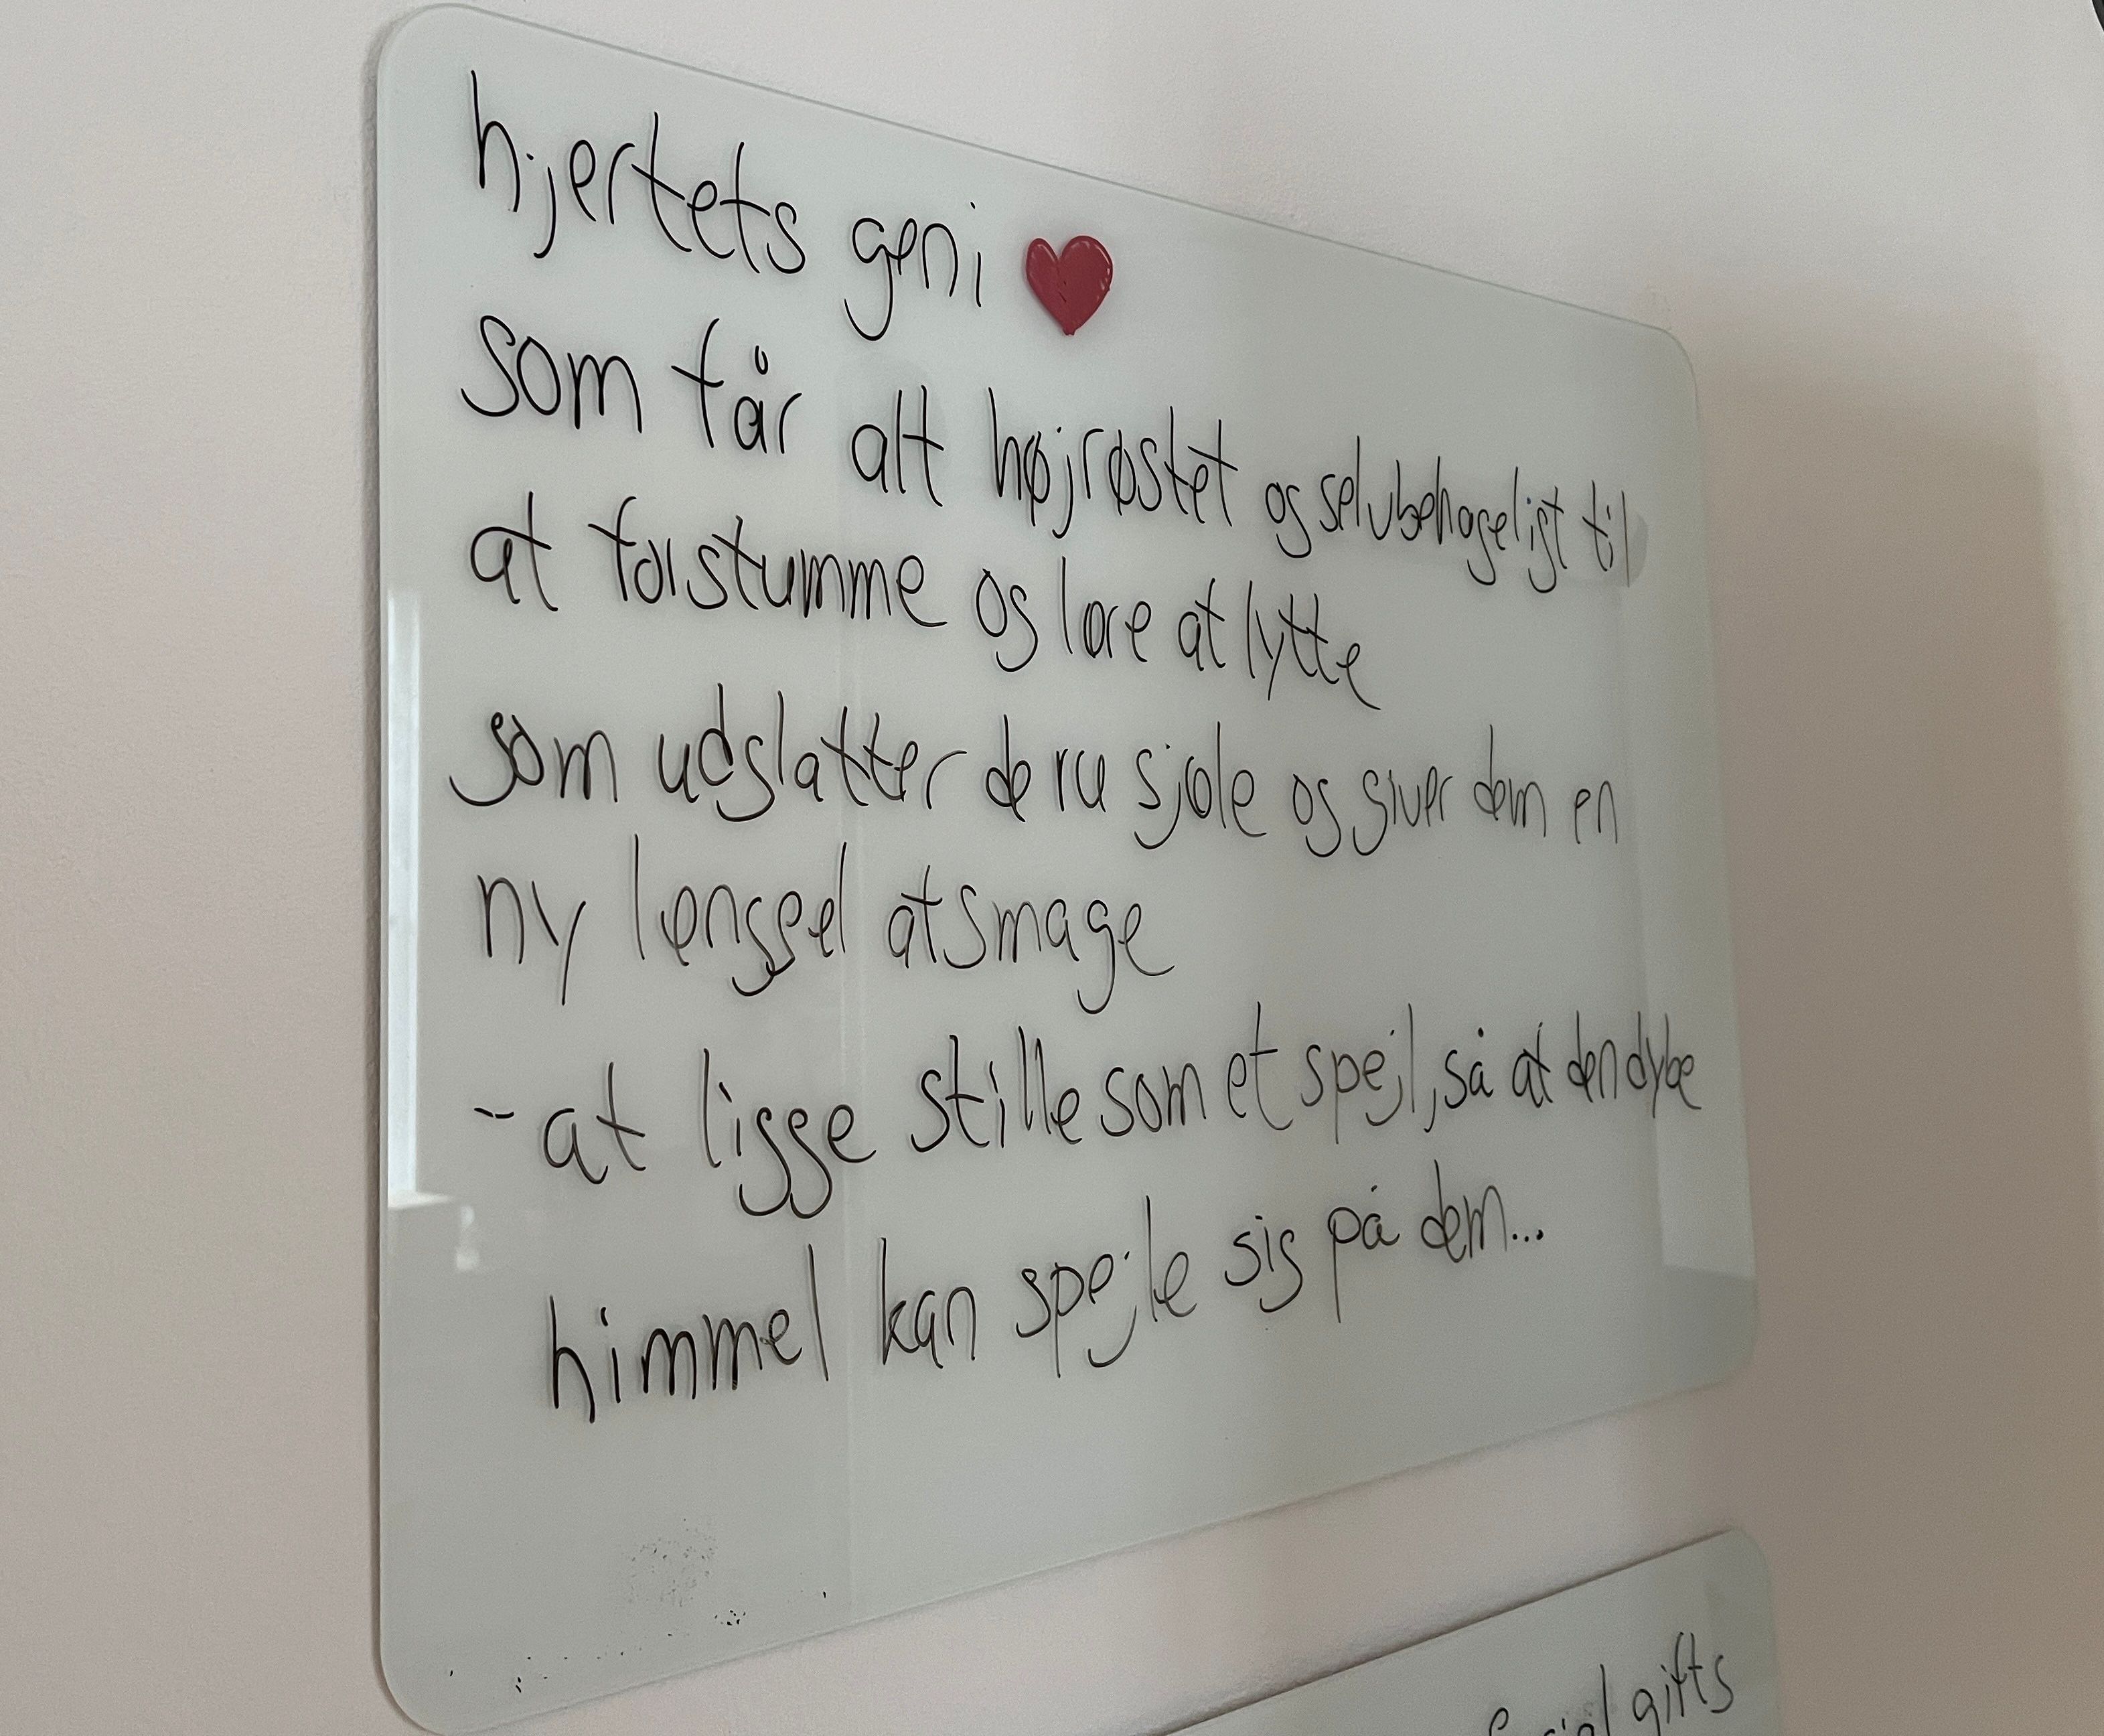 hjertets geni
som får alt højrøstet og selvbehageligt til
at forstumme og lære at lytte
som udglatter de ru sjæle og giver dem en
ny længsel at smage
- at ligge stille som et spejl, så at den dybe
himmel kan spejle sig på dem...
gifts